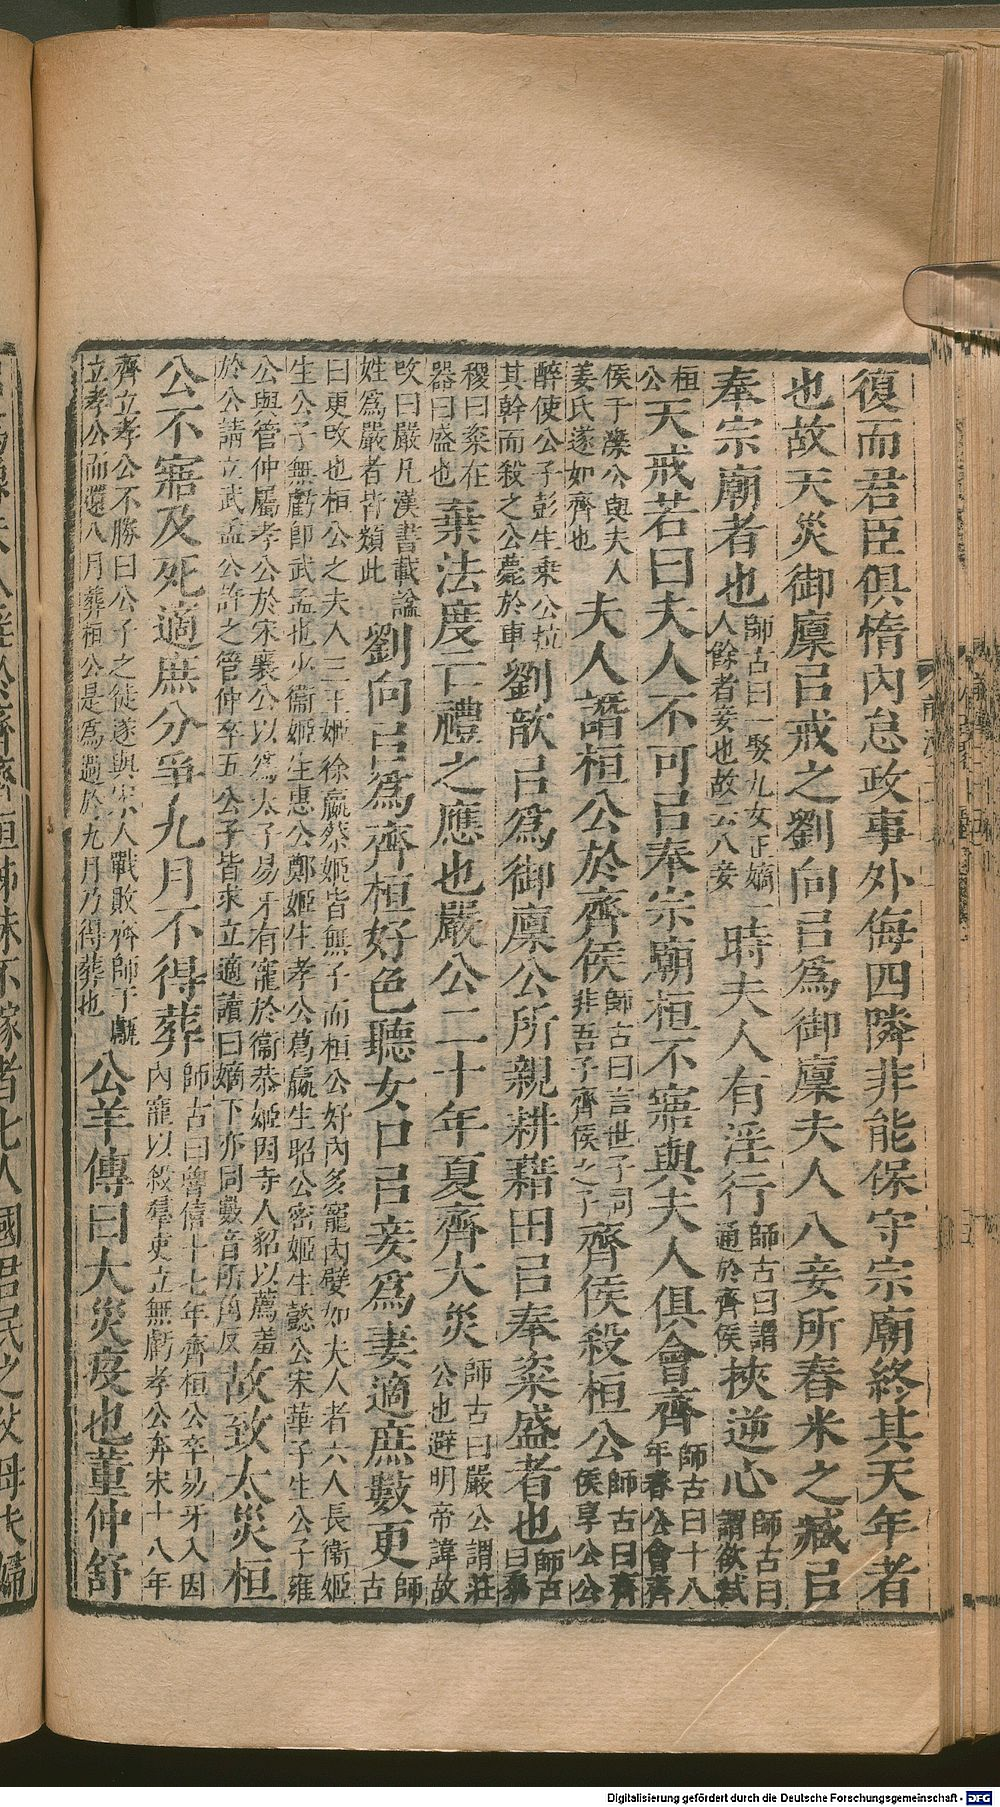 復而君臣俱惰內怠政事外侮四隣非能保守宗廟終其天年者
也故天災御廩㠯戒之劉向㠯爲御廩夫人八妾所舂米之臧㠯
奉宗廟者也師古曰一娶九女正嫡一人餘者妾也故云八妾時夫人有淫行師古曰謂通於齊侯挾逆心師古曰謂欲弒
桓公天戒若曰夫人不可㠯奉宗廟桓不寤與夫人俱會齊師古曰十八年春公會齊
侯于濼公與夫人姜氏遂如齊也夫人譖桓公於齊侯師古曰言世子同非吾子齊侯之子齊侯殺桓公師古曰齊侯享公公
醉使公子彭生乗公拉其幹而殺之公薨於車劉歆㠯爲御廩公所親耕藉田㠯奉粢盛者也師古曰黍
稷曰粢在器曰盛也棄法度亡禮之應也嚴公二十年夏齊大災師古曰嚴公謂莊公也避明帝諱故
改曰嚴凡漢書載謚姓爲嚴者皆類此劉向㠯爲齊桓好色聽女口㠯妾爲妻適庶數更師古
曰更改也桓公之夫人三王姬徐嬴蔡姬皆無子而桓公好內多寵內嬖如夫人者六人長衞姬
生公子無虧即武孟也少衞姬生惠公鄭姬生孝公葛嬴生昭公密姬生懿公宋華子生公子雍
公與管仲屬孝公於宋襄公以爲太子易牙有寵於衞恭姬因寺人貂以薦羞
於公請立武孟公許之管仲卒五公子皆求立適讀曰嫡下亦同數音所角反故致大災桓
公不寤及死適庶分爭九月不得葬師古曰魯僖十七年齊桓公卒易牙入因內寵以殺羣吏立無虧孝公奔宋十八年
齊立孝公不勝曰公子之徒遂與宋人戰敗齊師于甗立孝公而還八月葬桓公是爲過於九月乃得葬也公羊傳曰大災疫也董仲舒
Digitalisierung gefördert durch die Deutsche Forschungsgemeinschaft - DFG